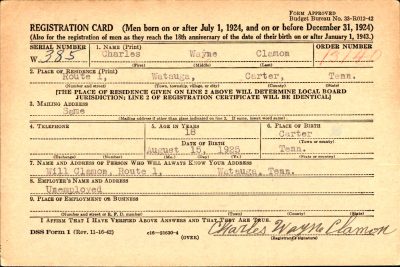 FORM APPROVED
Budget Bureau No. 33-R012-42
REGISTRATION CARD (Men born on or after July 1, 1924, and on or before December 31, 1924)
(Also for the registration of men as they reach the 18th anniversary of the date of their birth on or after January 1, 1943.)
SERIAL NUMBER 1. NAME (Print) ORDER NUMBER
W 385 Charles Wayne Clamon
(First) (Middle) (Last)
2. PLACE OF RESIDENCE (Print)
Route 1, Watauga, Carter, Tenn.
(Number and street) (Town, township, village, or city) (County) (State)
[THE PLACE OF RESIDENCE GIVEN ON LINE 2 ABOVE WILL DETERMINE LOCAL BOARD
JURISDICTION; LINE 2 OF REGISTRATION CERTIFICATE WILL BE IDENTICAL]
3. MAILING ADDRESS
Same
[Mailing address if other than place indicated on line 2. If same, insert word same]
4. TELEPHONE 5. AGE IN YEARS 6. PLACE OF BIRTH
18 Carter
DATE OF BIRTH (Town or county)
August 15, 1925 Tenn.
(Exchange) (Number) (Mo.) (Day) (Yr.) (State or country)
7. NAME AND ADDRESS OF PERSON WHO WILL ALWAYS KNOW YOUR ADDRESS
Will Clamon, Route 1, Watauga, Tenn.
8. EMPLOYER'S NAME AND ADDRESS
Unemployed
9. PLACE OF EMPLOYMENT OR BUSINESS
(Number and street or R. F. D. number) (Town) (County) (State)
I AFFIRM THAT I HAVE VERIFIED ABOVE ANSWERS AND THAT THEY ARE TRUE.
DSS Form 1 (Rev. 11-16-42) c16-21630-4 Charles Wayne Clamon
(OVER) (Registrant's signature)